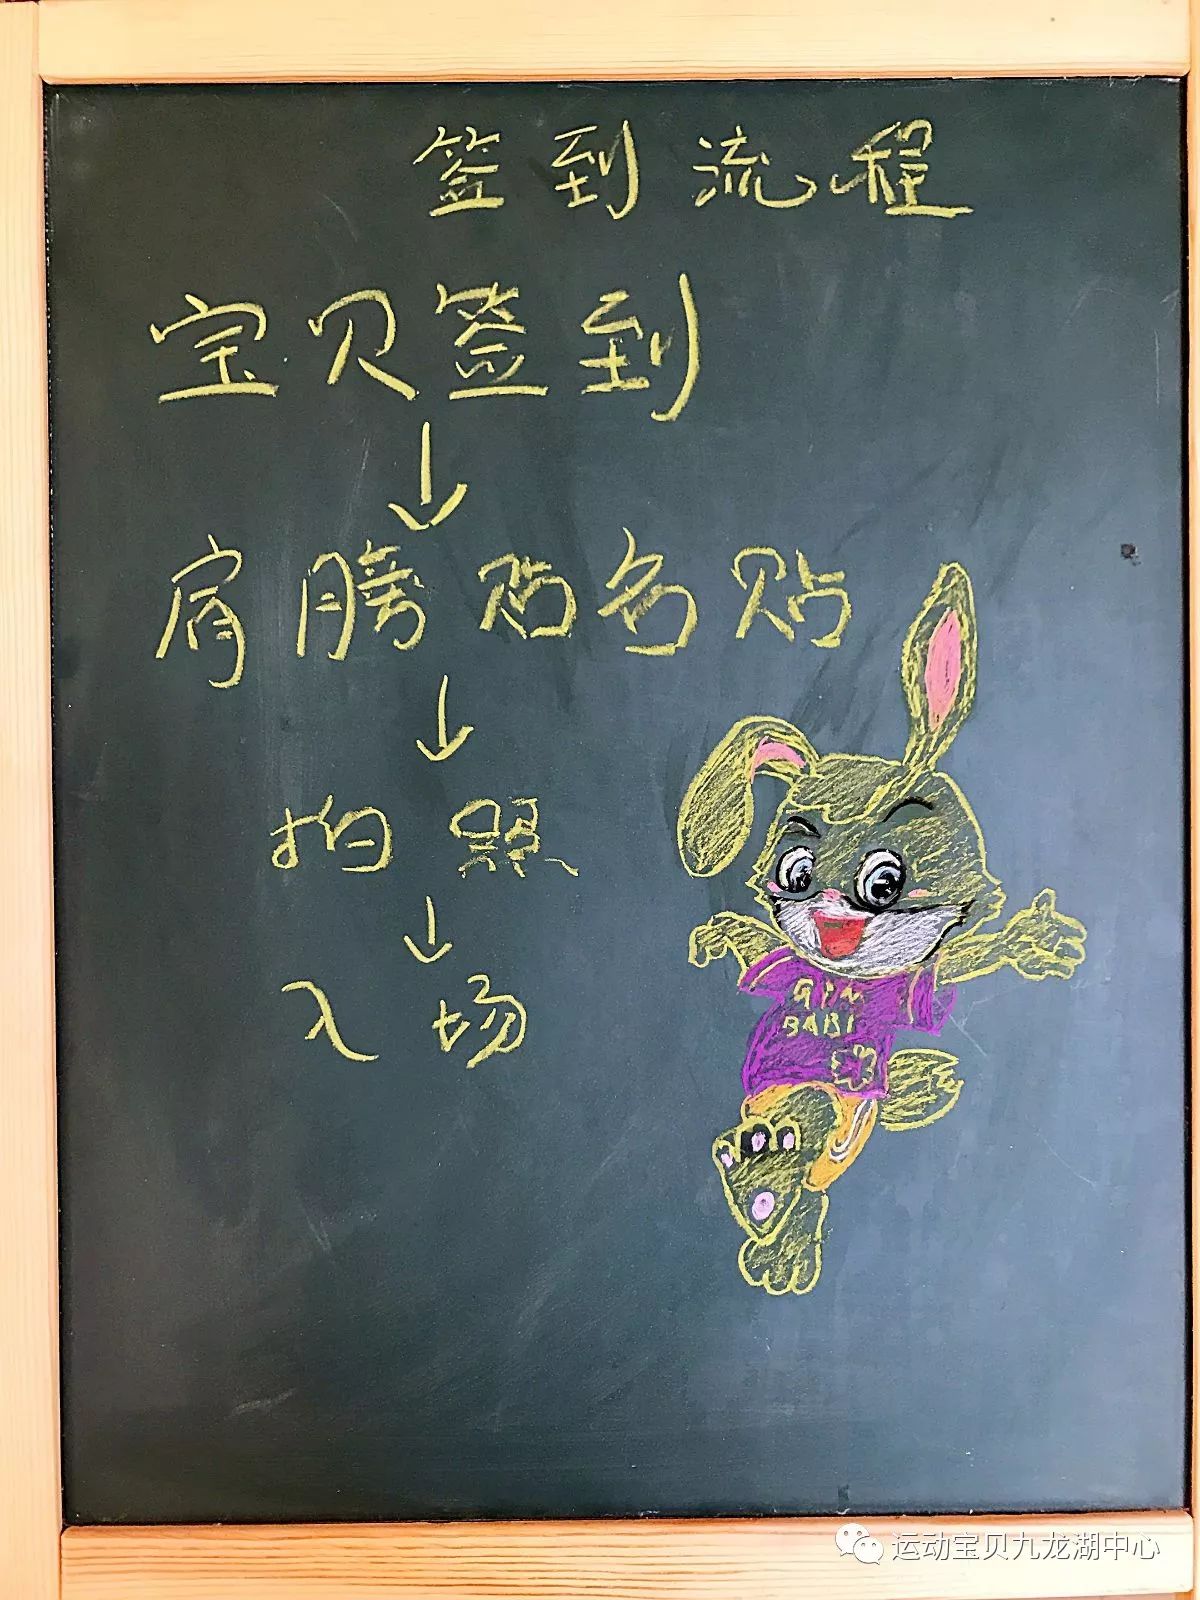 签到流程
宝贝签到
↓
肩膀贴名贴
↓
拍照
↓
入场
GYM
BABI
运动宝贝九龙湖中心